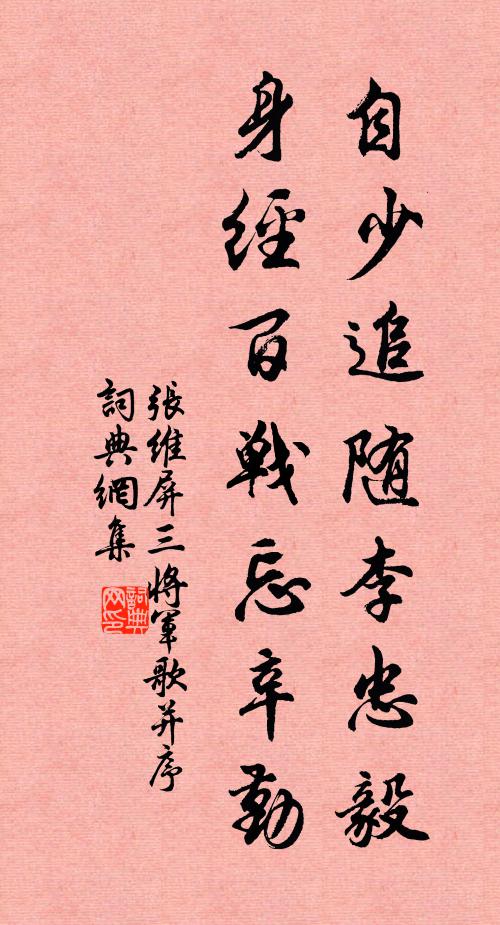 自少追随李忠毅
身經百戰忘辛勤
張維屏三將軍歌并序
詞典網集
詞典網印